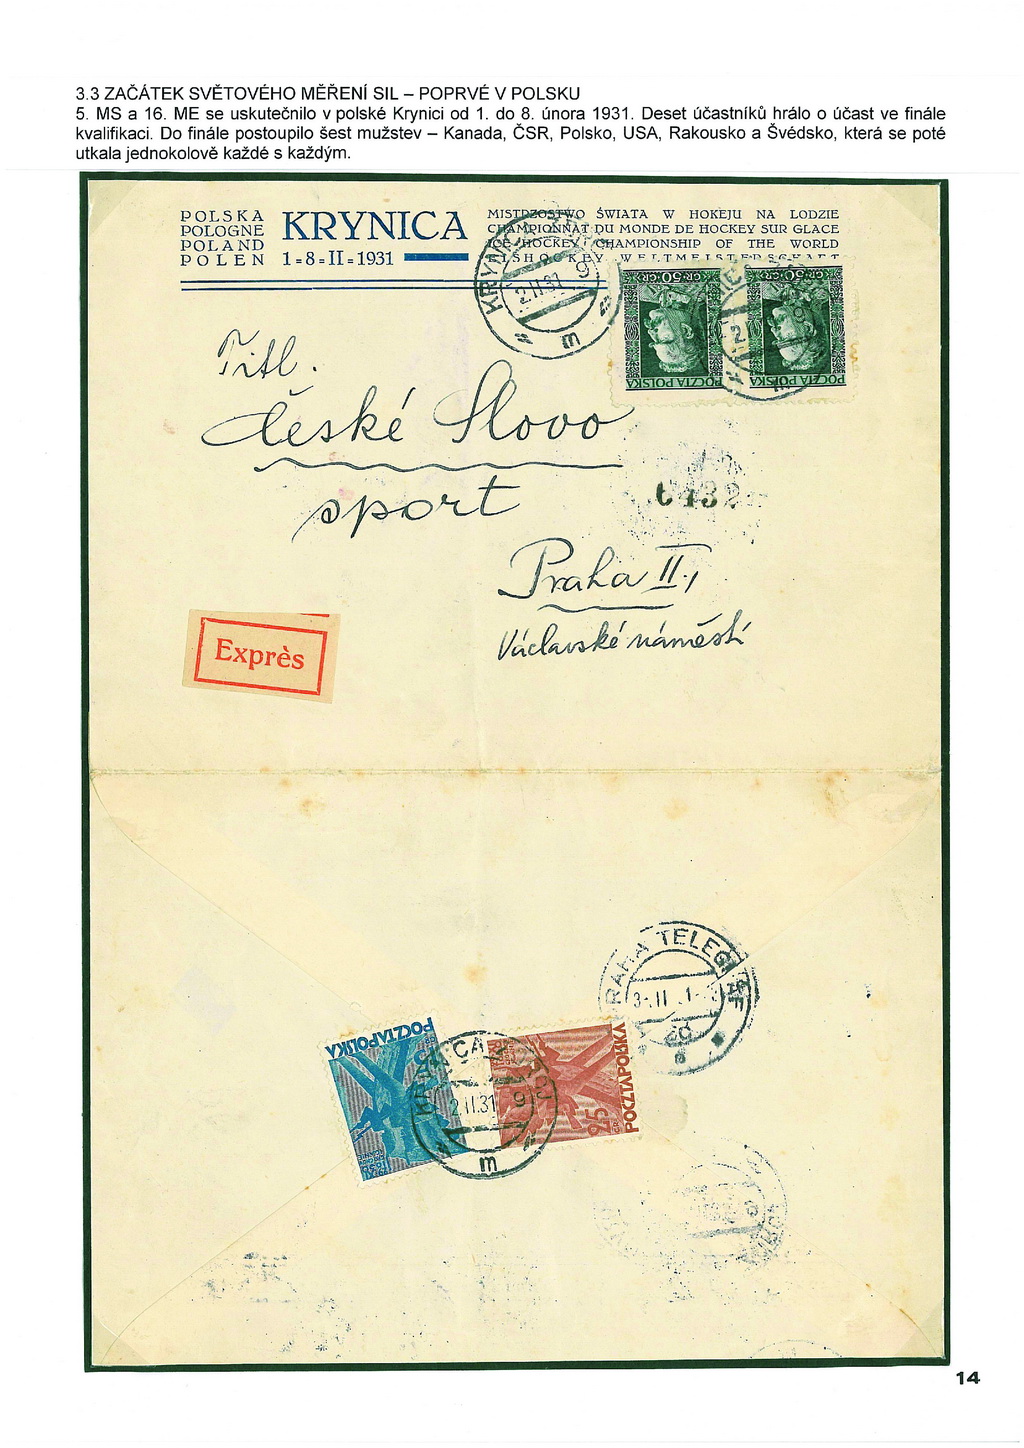 3.3 ZAČÁTEK SVĚTOVÉHO MĚŘENÍ SIL – POPRVÉ V POLSKU
5. MS a 16. ME se uskutečnilo v polské Krynici od 1. do 8. února 1931. Deset účastníků hrálo o účast ve finále
kvalifikaci. Do finále postoupilo šest mužstev – Kanada, ČSR, Polsko, USA, Rakousko a Švédsko, která se poté
utkala jednokolově každé s každým.
POLSKA
POLOGNE
POLAND
POLEN
KRYNICA
1=8=II=1931
MISTRZOSTWO ŚWIATA W HOKEJU NA LODZIE
CHAMPIONNAT DU MONDE DE HOCKEY SUR GLACE
ICE HOCKEY CHAMPIONSHIP OF THE WORLD
EISHOCKEY WELTMEISTERSCHAFT
KRYNICA
2.II.31 9
m
GR·50·GR
POCZTA POLSKA
GR·50·GR
POCZTA POLSKA
2.II
9
m
Titl.
České Slovo
sport
6432
Praha II.,
Václavské náměstí
Exprès
PRAHA TELEGRAF
3.II
POCZTA POLSKA
5
GR
25
GR
POCZTA POLSKA
KRYNICA ZDRÓJ
2.II.31 9
m
14